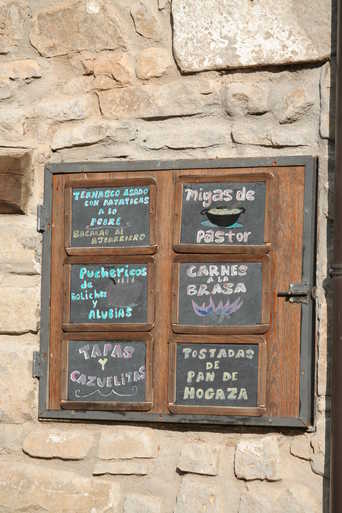 TERNASCO ASADO
CON PATATICAS
A LO
POBRE
BACALAO AL
AJOARRIERO
Migas de
Pastor
Puchericos
de
Boliches
y
ALUBIAS
CARNES
A LA
BRASA
TAPAS
Y
CAZUELITAS
TOSTADAS
DE
PAN DE
HOGAZA